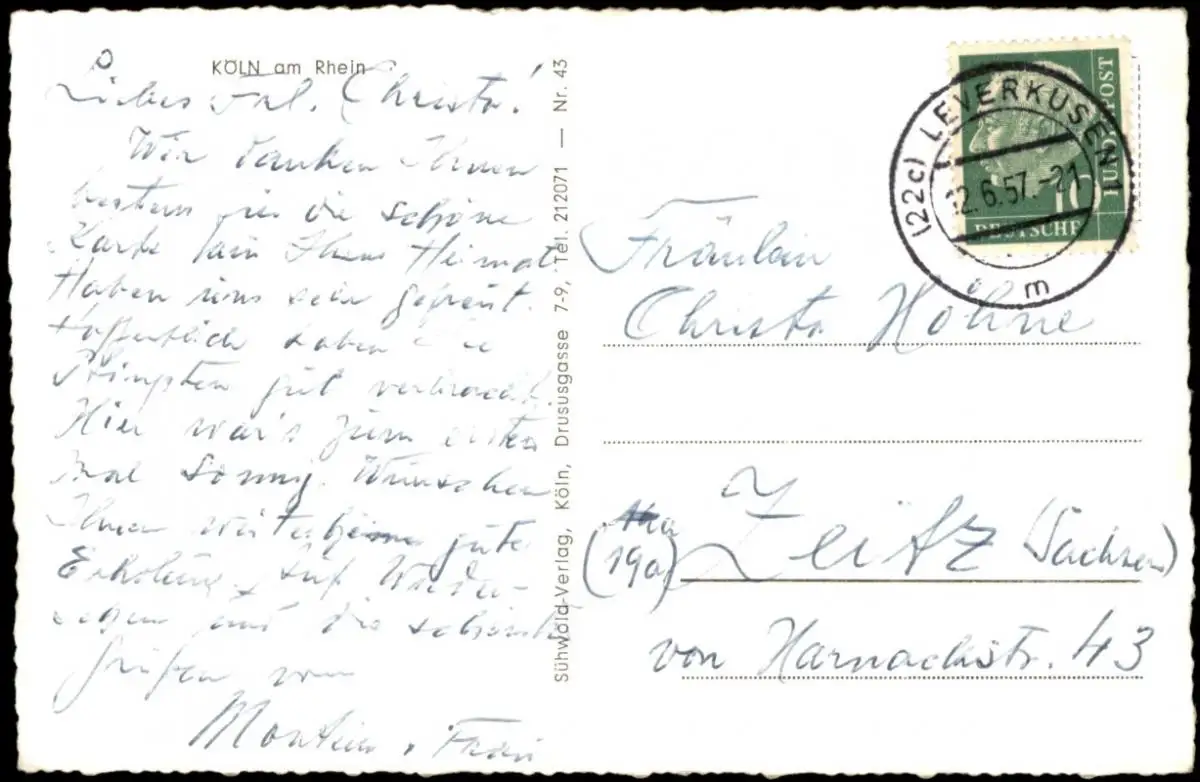 KÖLN am Rhein
Liebes Frl. Christa!
Wir danken Ihnen
bestens für die schöne
Karte von Ihrer Heimat
Haben uns sehr gefreut.
Hoffentlich haben Sie
Pfingsten gut verbracht.
Hier war's zum ersten
Mal sonnig. Wünschen
Ihnen weiterhin gute
Erholung. Auf Wieder-
sehen und die schönsten
Grüßen von
u. Frau
Sühwold-Verlag, Köln, Drususgasse 7-9, Tel. 212071 — Nr. 43
(22c) LEVERKUSEN 1
12.6.57.-21
m
10
DEUTSCHE
BUNDESPOST
Fräulein
Christa Hohne
(19a) Zeitz (Sachsen)
von Harnackstr. 43